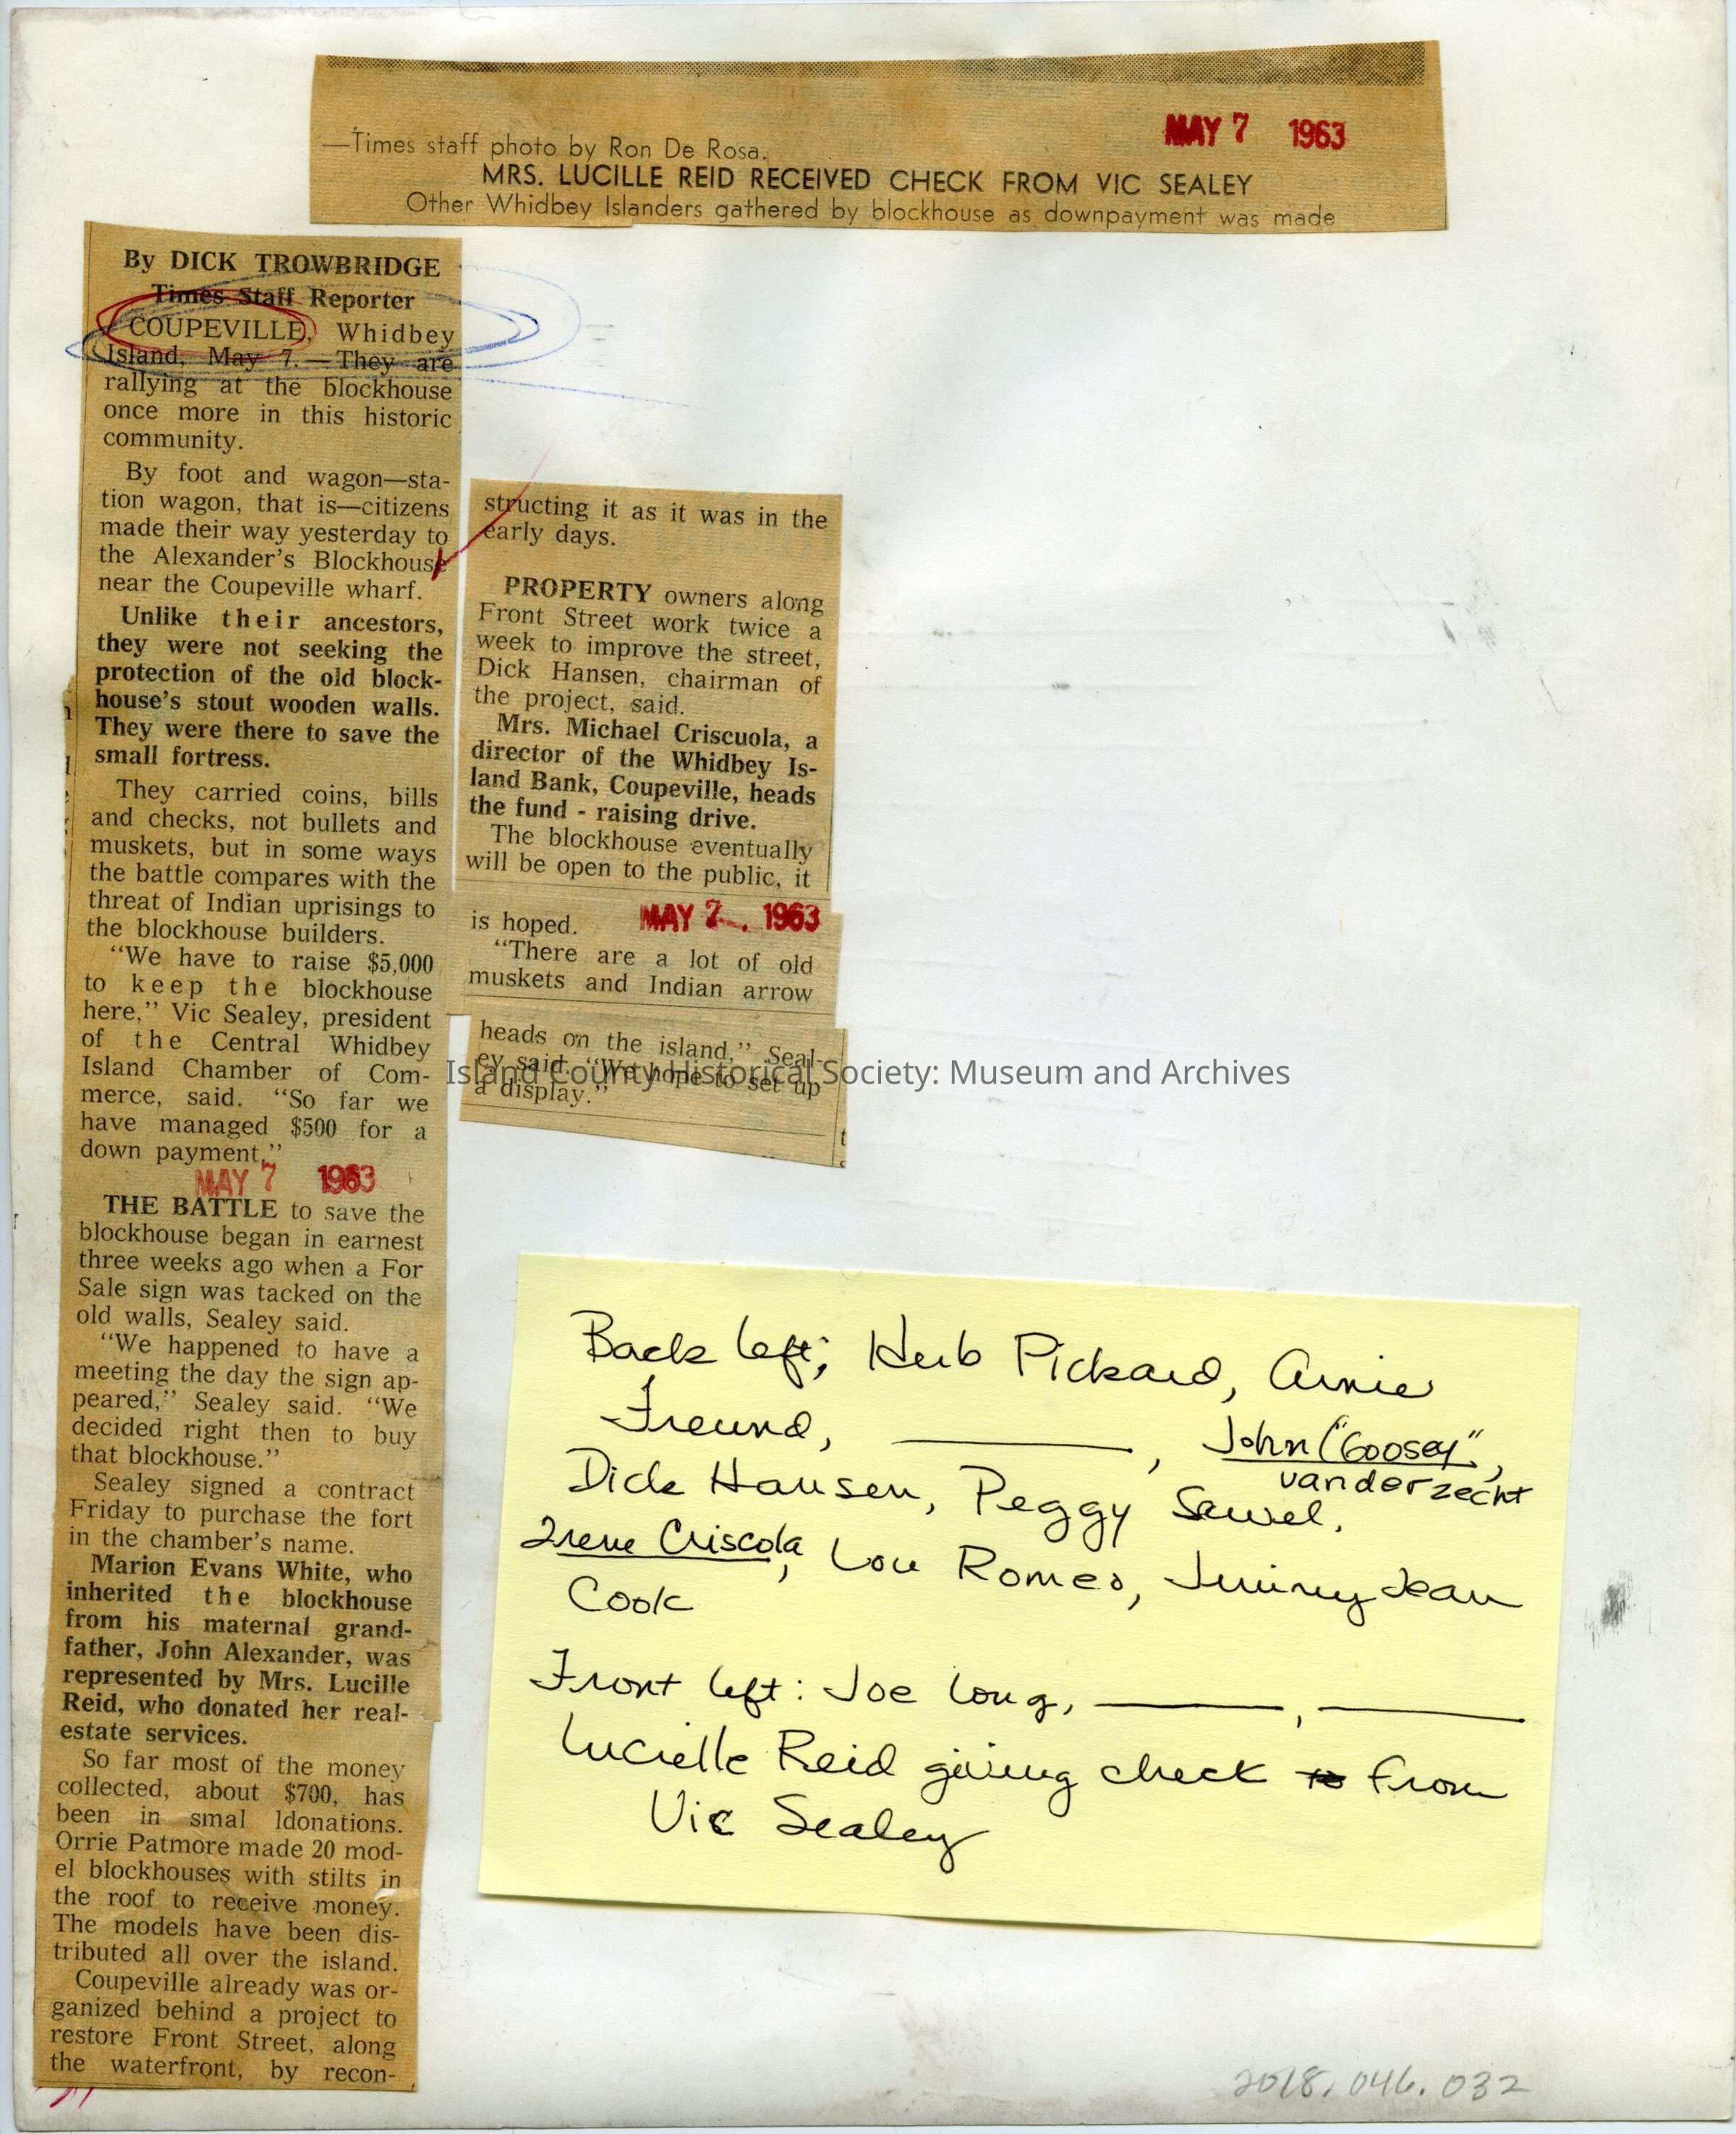 —Times staff photo by Ron De Rosa.
MAY 7 1963
MRS. LUCILLE REID RECEIVED CHECK FROM VIC SEALEY
Other Whidbey Islanders gathered by blockhouse as downpayment was made
By DICK TROWBRIDGE
Times Staff Reporter
COUPEVILLE, Whidbey
Island, May 7.—They are
rallying at the blockhouse
once more in this historic
community.
By foot and wagon—sta-
tion wagon, that is—citizens
made their way yesterday to
the Alexander's Blockhouse
near the Coupeville wharf.
Unlike their ancestors,
they were not seeking the
protection of the old block-
house's stout wooden walls.
They were there to save the
small fortress.
They carried coins, bills
and checks, not bullets and
muskets, but in some ways
the battle compares with the
threat of Indian uprisings to
the blockhouse builders.
"We have to raise $5,000
to keep the blockhouse
here," Vic Sealey, president
of the Central Whidbey
Island Chamber of Com-
merce, said. "So far we
have managed $500 for a
down payment."
MAY 7 1963
THE BATTLE to save the
blockhouse began in earnest
three weeks ago when a For
Sale sign was tacked on the
old walls, Sealey said.
"We happened to have a
meeting the day the sign ap-
peared," Sealey said. "We
decided right then to buy
that blockhouse."
Sealey signed a contract
Friday to purchase the fort
in the chamber's name.
Marion Evans White, who
inherited the blockhouse
from his maternal grand-
father, John Alexander, was
represented by Mrs. Lucille
Reid, who donated her real-
estate services.
So far most of the money
collected, about $700, has
been in smal ldonations.
Orrie Patmore made 20 mod-
el blockhouses with stilts in
the roof to receive money.
The models have been dis-
tributed all over the island.
Coupeville already was or-
ganized behind a project to
restore Front Street, along
the waterfront, by recon-
structing it as it was in the
early days.
PROPERTY owners along
Front Street work twice a
week to improve the street,
Dick Hansen, chairman of
the project, said.
Mrs. Michael Criscuola, a
director of the Whidbey Is-
land Bank, Coupeville, heads
the fund - raising drive.
The blockhouse eventually
will be open to the public, it
is hoped.
MAY 7 . 1963
"There are a lot of old
muskets and Indian arrow
heads on the island," Seal-
ey said. "We hope to set up
a display."
Island County Historical Society: Museum and Archives
Back left; Herb Pickard, Arnie
Freund, , John ("Goosey",
vanderzecht
Dick Hansen, Peggy Sewel,
Irene Criscola, Lou Romeo, Jimmy Jean
Cook
Front left: Joe Long, ,
Lucielle Reid giving check to From
Vic Sealey
2018.046.032